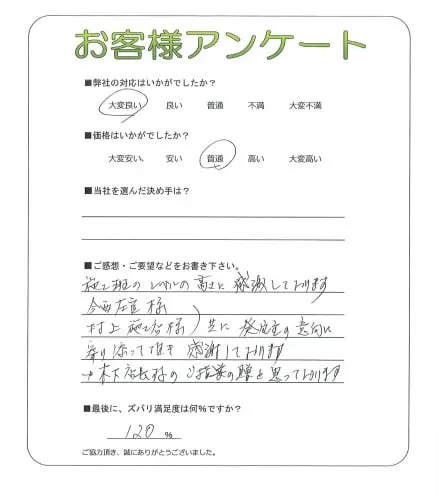 お客様アンケート
■弊社の対応はいかがでしたか？
大変良い 良い 普通 不満 大変不満
■価格はいかがでしたか？
大変安い、 安い 普通 高い 大変高い
■当社を選んだ決め手は？
■ご感想・ご要望などをお書き下さい。
施工班のレベルの高さに感謝しております
様
村上施工店様 共に 発注主の意向に
寄り添って頂き 感謝しております
→木下店長様のご指導の賜と思っております
■最後に、ズバリ満足度は何％ですか？
120 %
ご協力頂き、誠にありがとうございました。